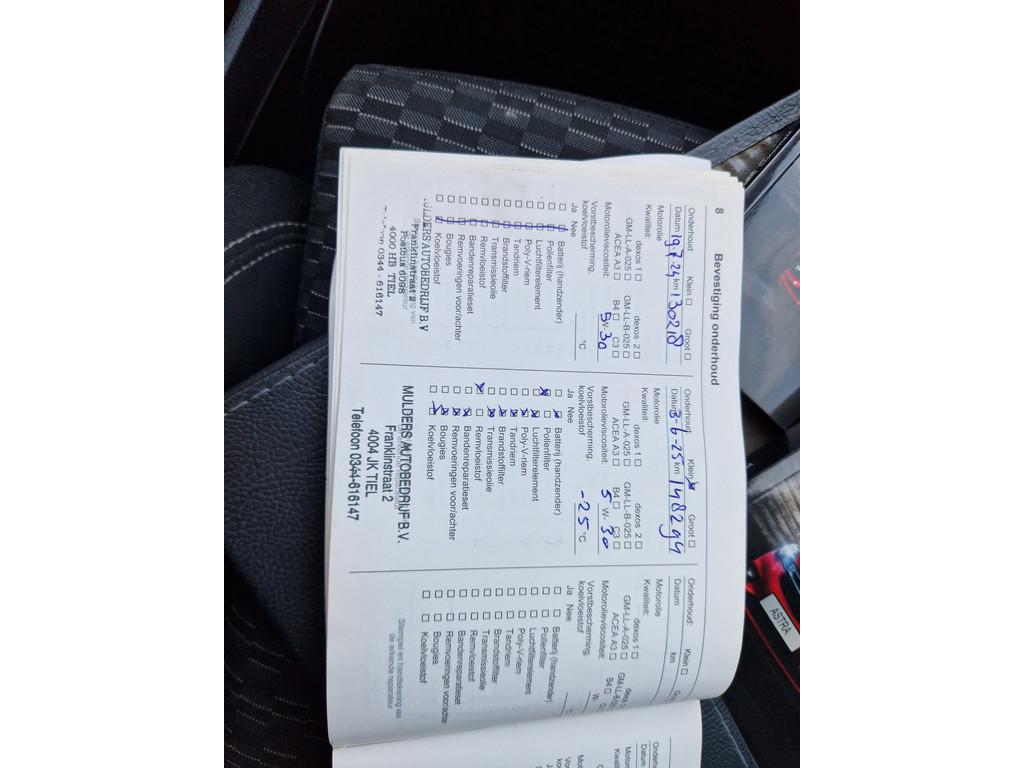 8
Bevestiging onderhoud
Onderhoud: Klein □ Groot □
Datum 19-7-24 km 130218
Motorolie
Kwaliteit: dexos 1 □ dexos 2 □
GM-LL-A-025 □ GM-LL-B-025 □
ACEA A3 □ B4 □ C3 □
Motorolieviscositeit: 5 W- 30
Vorstbescherming,
koelvloeistof °C
Ja Nee
□ □ Batterij (handzender)
□ □ Pollenfilter
□ □ Luchtfilterelement
□ □ Poly-V-riem
□ □ Tandriem
□ □ Brandstoffilter
□ □ Transmissieolie
□ □ Remvloeistof
□ □ Bandenreparatieset
□ □ Remvoeringen voor/achter
□ □ Bougies
□ □ Koelvloeistof
MULDERS AUTOBEDRIJF B.V
Franklinstraat 2
Postbus 6098
4000 HB TIEL
Telefoon 0344 - 616147
Onderhoud: Klein ☒ Groot □
Datum 3-6-25 km 148294
Motorolie
Kwaliteit: dexos 1 □ dexos 2 □
GM-LL-A-025 □ GM-LL-B-025 □
ACEA A3 □ B4 □ C3 □
Motorolieviscositeit: 5 W- 30
Vorstbescherming,
koelvloeistof -25 °C
Ja Nee
□ ☒ Batterij (handzender)
☒ □ Pollenfilter
□ ☒ Luchtfilterelement
□ ☒ Poly-V-riem
□ ☒ Tandriem
□ ☒ Brandstoffilter
□ ☒ Transmissieolie
☒ □ Remvloeistof
□ ☒ Bandenreparatieset
□ ☒ Remvoeringen voor/achter
□ ☒ Bougies
□ ☒ Koelvloeistof
MULDERS AUTOBEDRIJF B.V.
Franklinstraat 2
4004 JK TIEL
Telefoon 0344-616147
Onderhoud: Klein □
Datum km
Motorolie
Kwaliteit: dexos 1 □
GM-LL-A-025 □
ACEA A3 □ B4 □
Motorolieviscositeit: W-
Vorstbescherming,
koelvloeistof
Ja Nee
□ □ Batterij (handzender)
□ □ Pollenfilter
□ □ Luchtfilterelement
□ □ Poly-V-riem
□ □ Tandriem
□ □ Brandstoffilter
□ □ Transmissieolie
□ □ Remvloeistof
□ □ Bandenreparatieset
□ □ Remvoeringen voor/achter
□ □ Bougies
□ □ Koelvloeistof
Stempel en handtekening van
de erkende reparateur
ASTRA